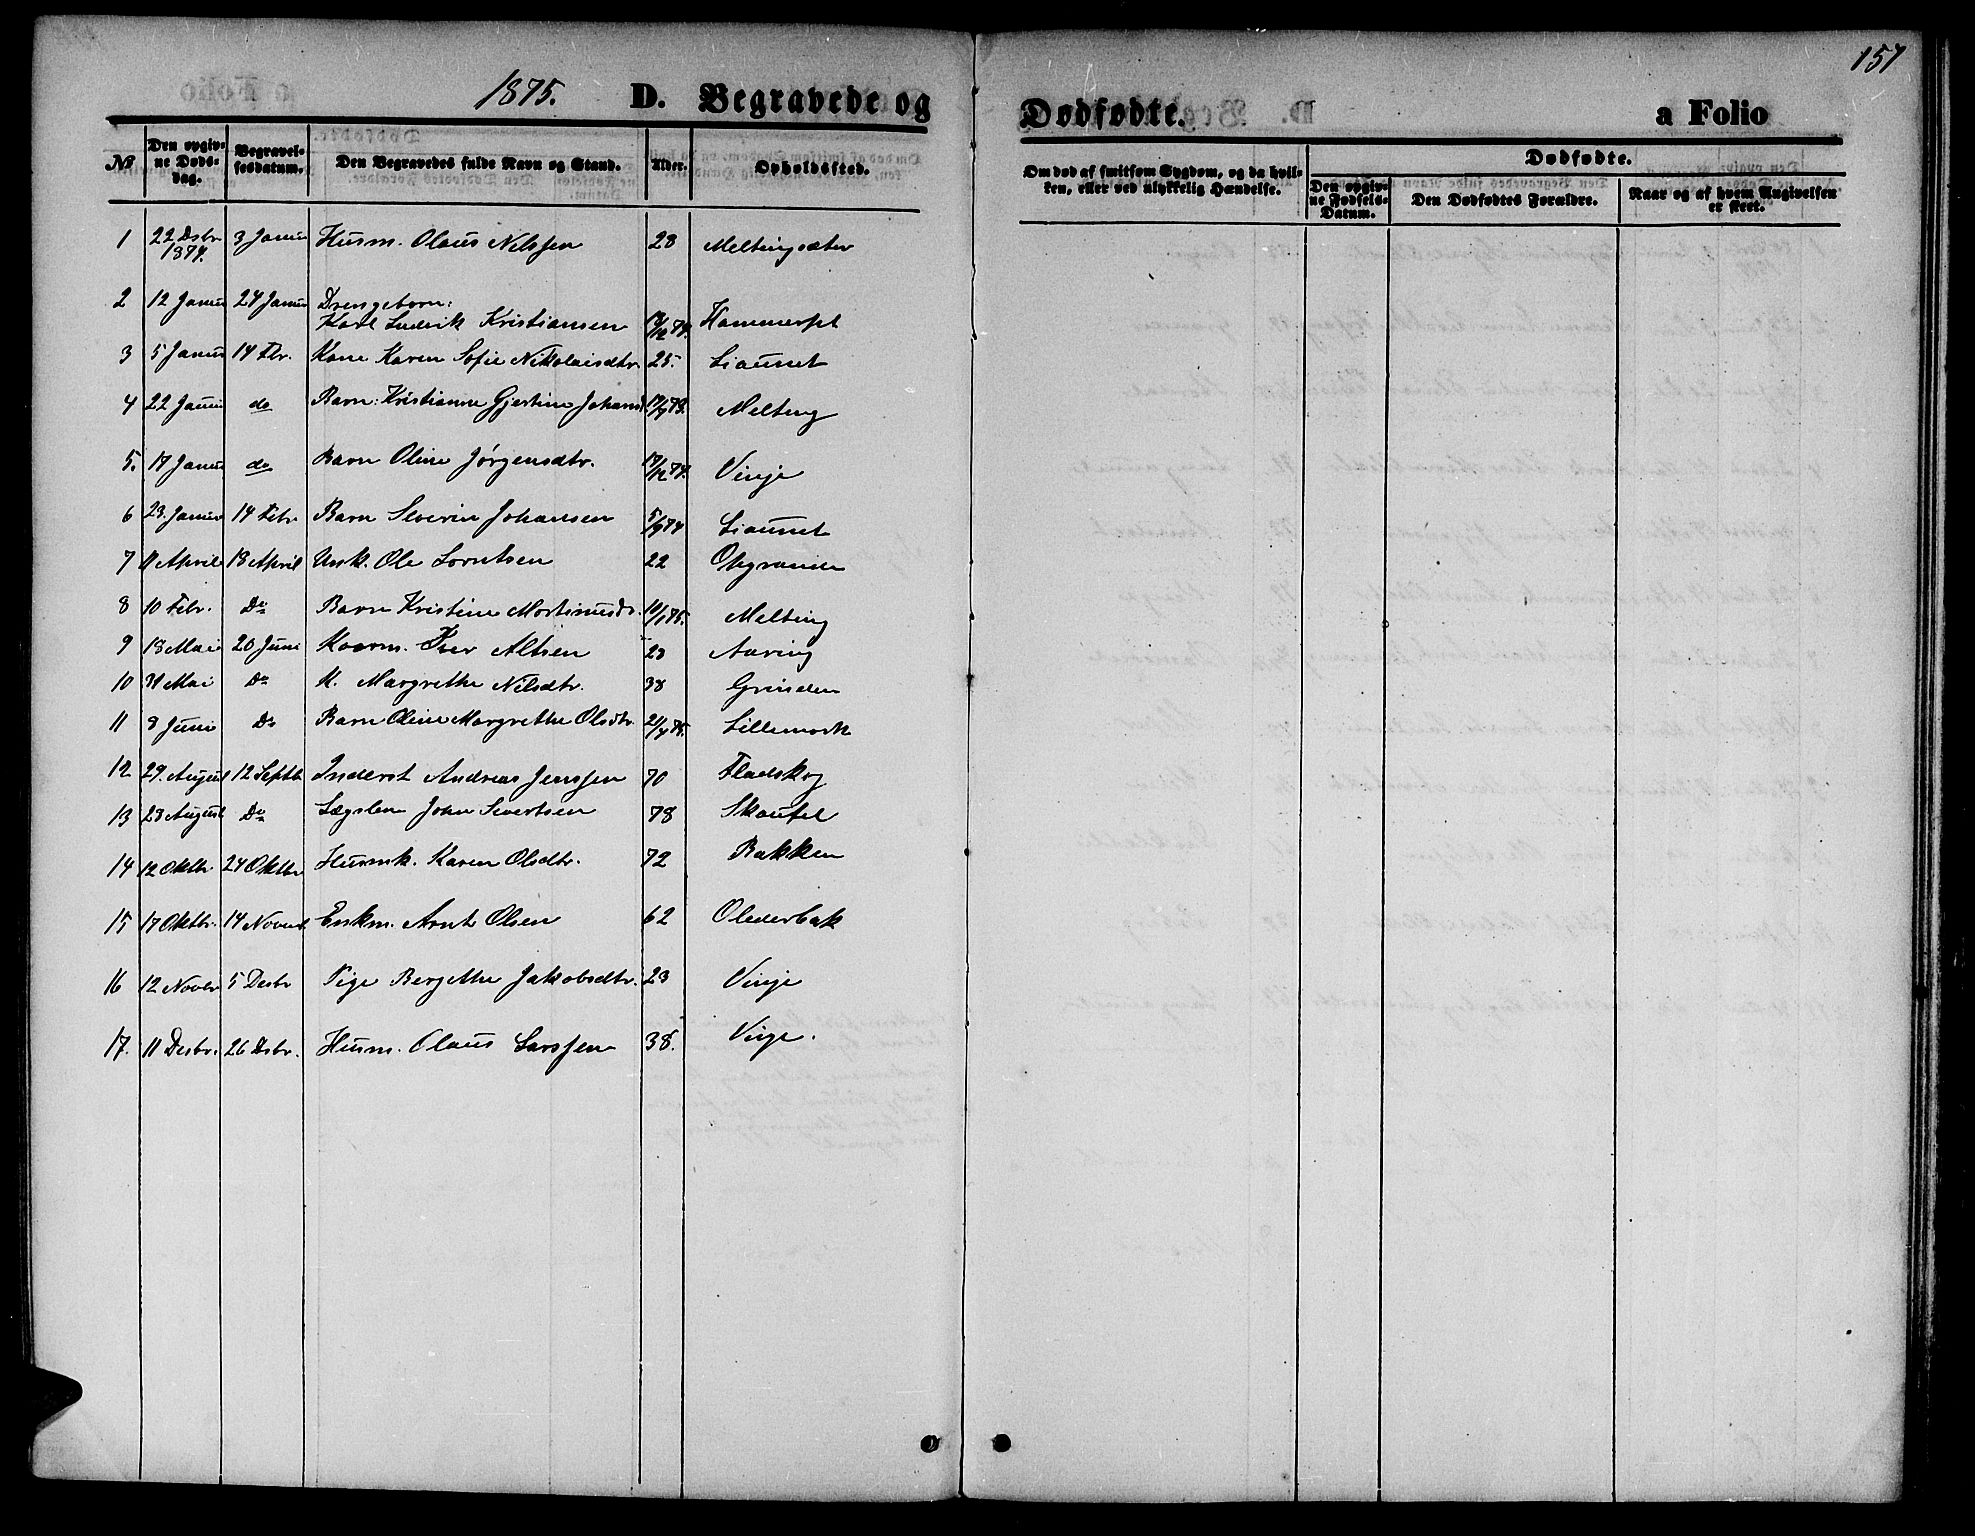 157
1875. D. Begravede og Dødfødte. a Folio
No.
Den opgivne Døds-dag.
Begravelsesdatum.
Den Begravedes fulde Navn og Stand.
Alder.
Opholdssted.
Om død af smitsom Sygdom, og da hvilken, eller ved ulykkelig Hændelse.
Dødfødte.
Den opgivne Fødsels-Datum.
Den Dødfødtes Forældre.
Naar og af hvem Angivelsen er skeet.
1 22 Dsbr 1874. 3 Januar Husm. Olaus Nilssen 28 Meltingsæter
2 12 Januar 24 Januar Drengebarn: Karl Ludvik Kristiansen 13/12 74.
3 5 Januar 14 Fbr. Kone Karen Sofie Nikolaisdtr. 25. Liaunet
4 22 Januar do Barn: Kristianne Gjertine Johans 17/9 73. Melting
5. 17 Januar do Barn Oline Jørgensdtr. 17/12 74. Vinje
6 23. Januar 14 Febr Barn Severin Johansen 5/9 74 Liaunet
7 11 April 18 April Unk. Ole Lorntsen 22
8 10 Febr. Do Barn Kristine Mortinusdr. 10/1 75. Melting
9 18 Mai 20 Juni Kaarm. Iver Altsen 23 Aaring
10 31 Mai Do K. Margrethe Nilsdtr. 38 Grinden
11 8 Juni Do Barn Oline Margrethe Olsdtr. 21/4 75. Lillemark
12 29. August 12 Septb Inderst Andreas Jenssen 70 Fladskog
13 23 August Do Lægslem John Sivertsen 78
14 12 Oktbr 24 Oktbr Husmk. Karen Olsdtr. 72 Bakken
15 17 Oktbr. 14 Novemb Enkm. Arnt Olsen 62
16 12 Novbr 5 Desbr Pige Bergithe Jakobsdtr. 23 Vinje
17. 11 Desbr. 26 Dsbr. Husm. Olaus Larssen 38. Vinje.